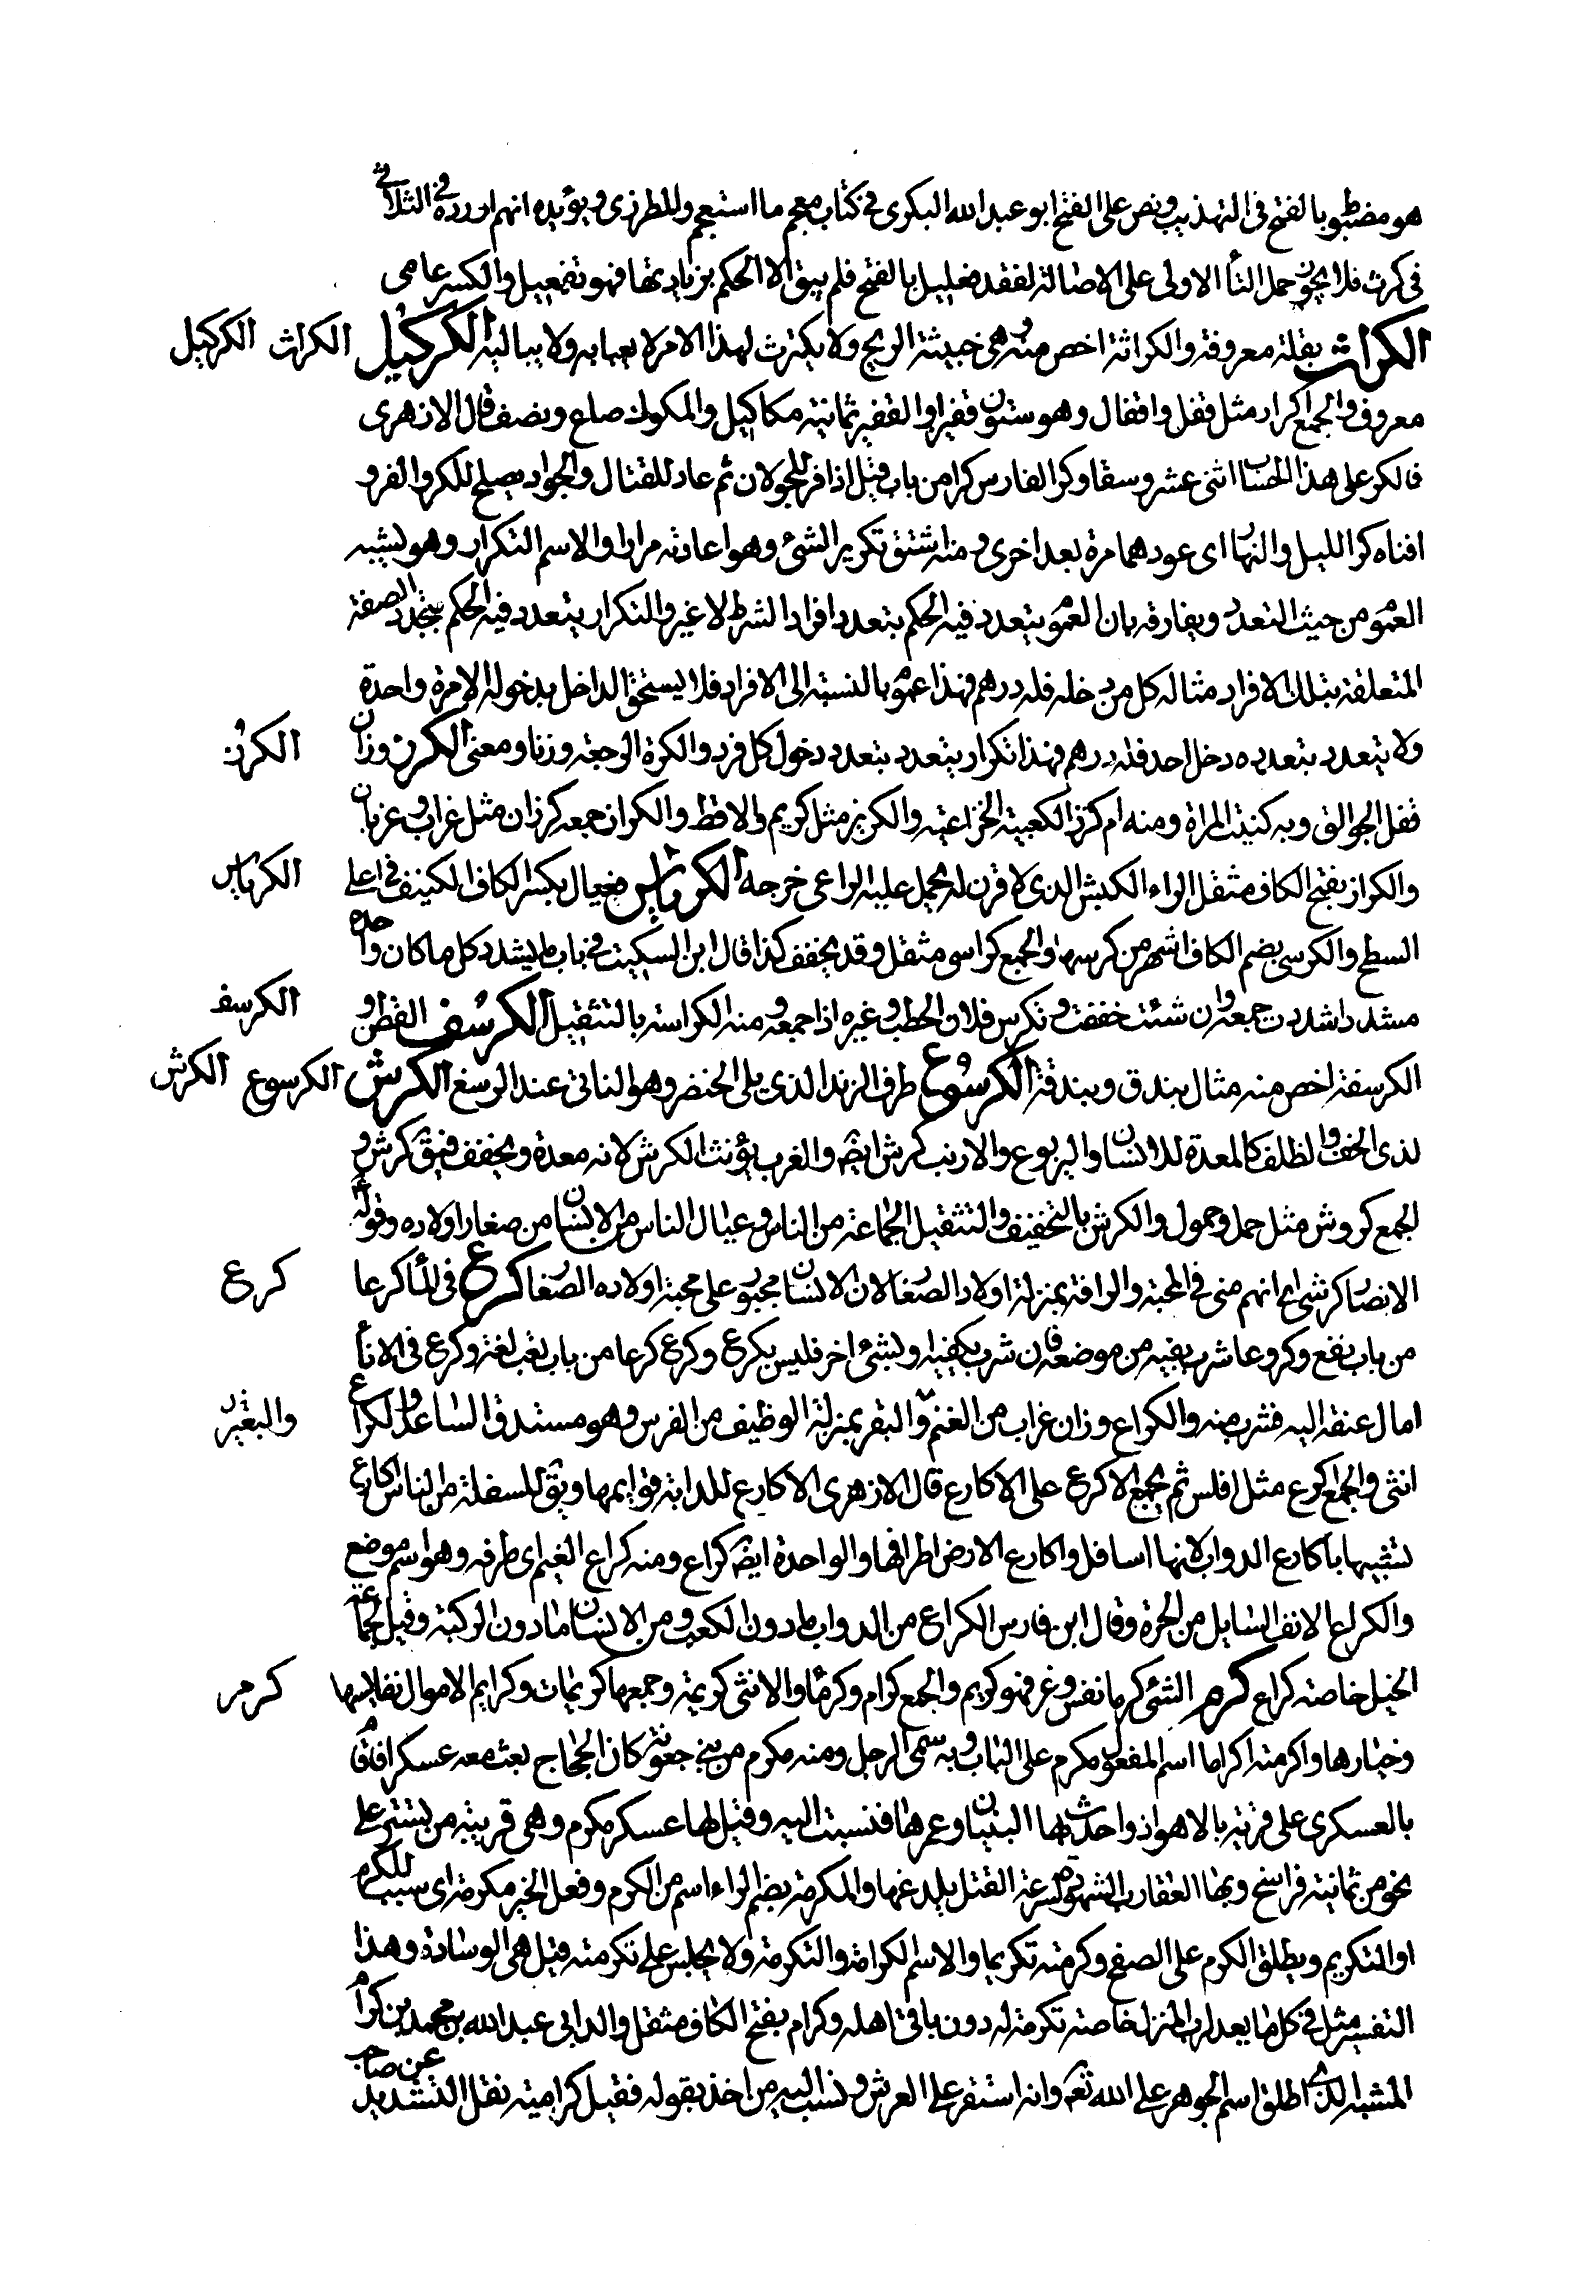 هو مضبوط بالفتح فى التهذيب ونص على الفتح ابو عبد الله البكرى فى كتاب معجم ما استعجم والمطرزى ويؤيده انهم اوردوه فى الثلاثى
فى كرث فلا يجوز حمل التأ الاولى على الاصالة لفقد فعليل بالفتح فلم يبق الا الحكم بزيادتها فهو تفعيل والكسر عامى
الكراث بقلة معروفة والكراثة اخص منه وهى خبيثة الريح ولا يكترث لهذا الامر لا يعبابه ولا يباليه الكركيل
الكراث الكركيل
معروف والجمع اكرار مثل قفل واقفال وهو ستون قفيزا والقفيز ثمانية مكاكيل والمكوك صاع ونصف قال الازهرى
فالكر على هذا الحساب اثنى عشر وسقا وكر الفارس كرا من باب قتل اذا فر للجولان ثم عاد للقتال والجواد يصلح للكر والفر و
افناه كر الليل والنهار اى عودهما مرة بعد اخرى ومنه اشتق تكرير الشئ وهو اعادته مرارا والاسم التكرار وهو يشبه
العموم من حيث التعدد ويفارقه بان العموم يتعدد فيه الحكم بتعدد افراد الشرط لا غير والتكرار يتعدد فيه الحكم بتجدد الصفة
المتعلقة بتلك الافراد مثاله كل من دخله فله درهم فهذا عموم بالنسبة الى الافراد فلا يستحق الداخل بدخوله الا مرة واحدة
ولا يتعدد بتعدده دخل احد فله درهم فهذا تكرار يتعدد بتعدد دخول كل فرد والكرة الرجعة وزنا ومعنى الكرز وزان
الكرز
قفل الجوالق وبه كنيت المراة ومنه ام كرز الكعبية الخزاعية والكريز مثل كريم والاقط والكراز جمعه كرزان مثل غراب وغربان
والكراز بفتح الكاف مثقل الراء الكبش الذى لا قرن له يحمل عليه الراعى خرجه الكرياس فعيال بكسر الكاف الكنيف فى اعلى
الكرياس
السطح والكرسى بضم الكاف اشهر من كسرها والجمع كراسى مثقل وقد يخفف كذا قال ابن السكيت فى باب ما يشدد كل ما كان واحده
مشددا شددت جمعه وان شئت خففت وتكرس فلان الحطب وغيره اذا جمعه ومنه الكراسة بالتثقيل الكرسف القطن و
الكرسف
الكرسفة اخص منه مثال بندق وبندقة الكرسوع طرف الزند الذى يلى الخنصر وهو الناتئ عند الرسغ الكرش
الكرسوع الكرش
لذى الخف والظلف كالمعدة للانسان واليربوع والارنب كرش ايضا والعرب يؤنث الكرش لانه معدة ويخفف فيق كرش و
الجمع كروش مثل حمل وحمول والكرش بالتخفيف والتثقيل الجماعة من الناس وعيال الناس من الانسان من صغار اولاده وقوله
الانصار كرشى اى انهم منى فى المحبة والرافة بمنزلة اولاد الصغار لان الانسان مجبور على محبة اولاده الصغار كرع فى المأ كرعا
كرع
من باب نفع وكروعا شرب بفيه من موضعه فان شرب بكفيه او بشئ اخر فليس بكرع وكرع كرعا من باب تعب لغة وكرع فى الانأ
امال عنقه اليه فشرب منه والكراع وزان غراب من الغنم والبقر بمنزلة الوظيف من الفرس وهو مستدق الساعد والكراع
والبعير
انثى والجمع اكرع مثل افلس ثم يجمع الاكرع على الاكارع قال الازهرى الاكارع للدابة قوايمها ويق للسفلة من الناس اكارع
تشبيها باكارع الدواب لانها اسافل واكارع الارض اطرافها والواحدة ايضا كراع ومنه كراع الغيم اى طرفه وهو اسم موضع
والكراع الانف السايل من الحرة وقال ابن فارس الكراع من الدواب مادون الكعب ومن الانسان مادون الركبة وقيل لجماعة
الخيل خاصة كراع كرم الشئ كرما نفس وعز فهو كريم والجمع كرام وكرمأ والانثى كريمة وجمعها كريمات وكرايم الاموال نفايسها
كرم
وخيارها واكرمته اكراما اسم المفعول مكرم على الباب وبه سمى الرجل ومنه مكرم من بنى جعونة كان الحجاج بعث معه عسكرا فاقام
بالعسكرى على قرية بالاهواز واحدث بها البنيان وعمرها فنسبت اليه وقيل لها عسكر مكرم وهى قريبة من تستر على
نحو من ثمانية فراسخ وبها العقارب المشهورة بسرعة القتل بلدغها والمكرمة بضم الراء اسم من الكرم وفعل الخير مكرمة اى سبب للكرم
او التكريم ويطلق الكرم على الصفح وكرمته تكريما والاسم الكرامة والتكرمة ولا يجلس على تكرمته قيل هى الوسادة وهذا
التفسير مثل فى كل ما يعد لرب المنزل خاصة تكرمة له دون باقى اهله وكرام بفتح الكاف مثقل والد ابى عبد الله بن محمد بن كرام
المشبه الذى اطلق اسم الجوهر على الله تعم وانه استقر على العرش ونسب اليه من اخذ بقوله فقيل كرامية نقل التشديد عن صاحب